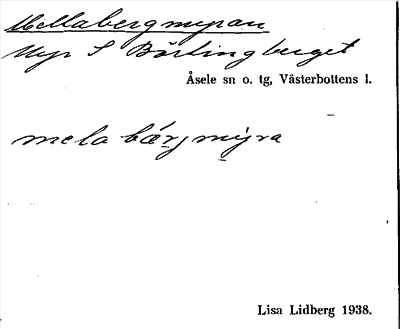 Mellabergmyran
Myr S Börtingberget
Åsele sn o. tg, Västerbottens l.
mela bærj myra
Lisa Lidberg 1938.